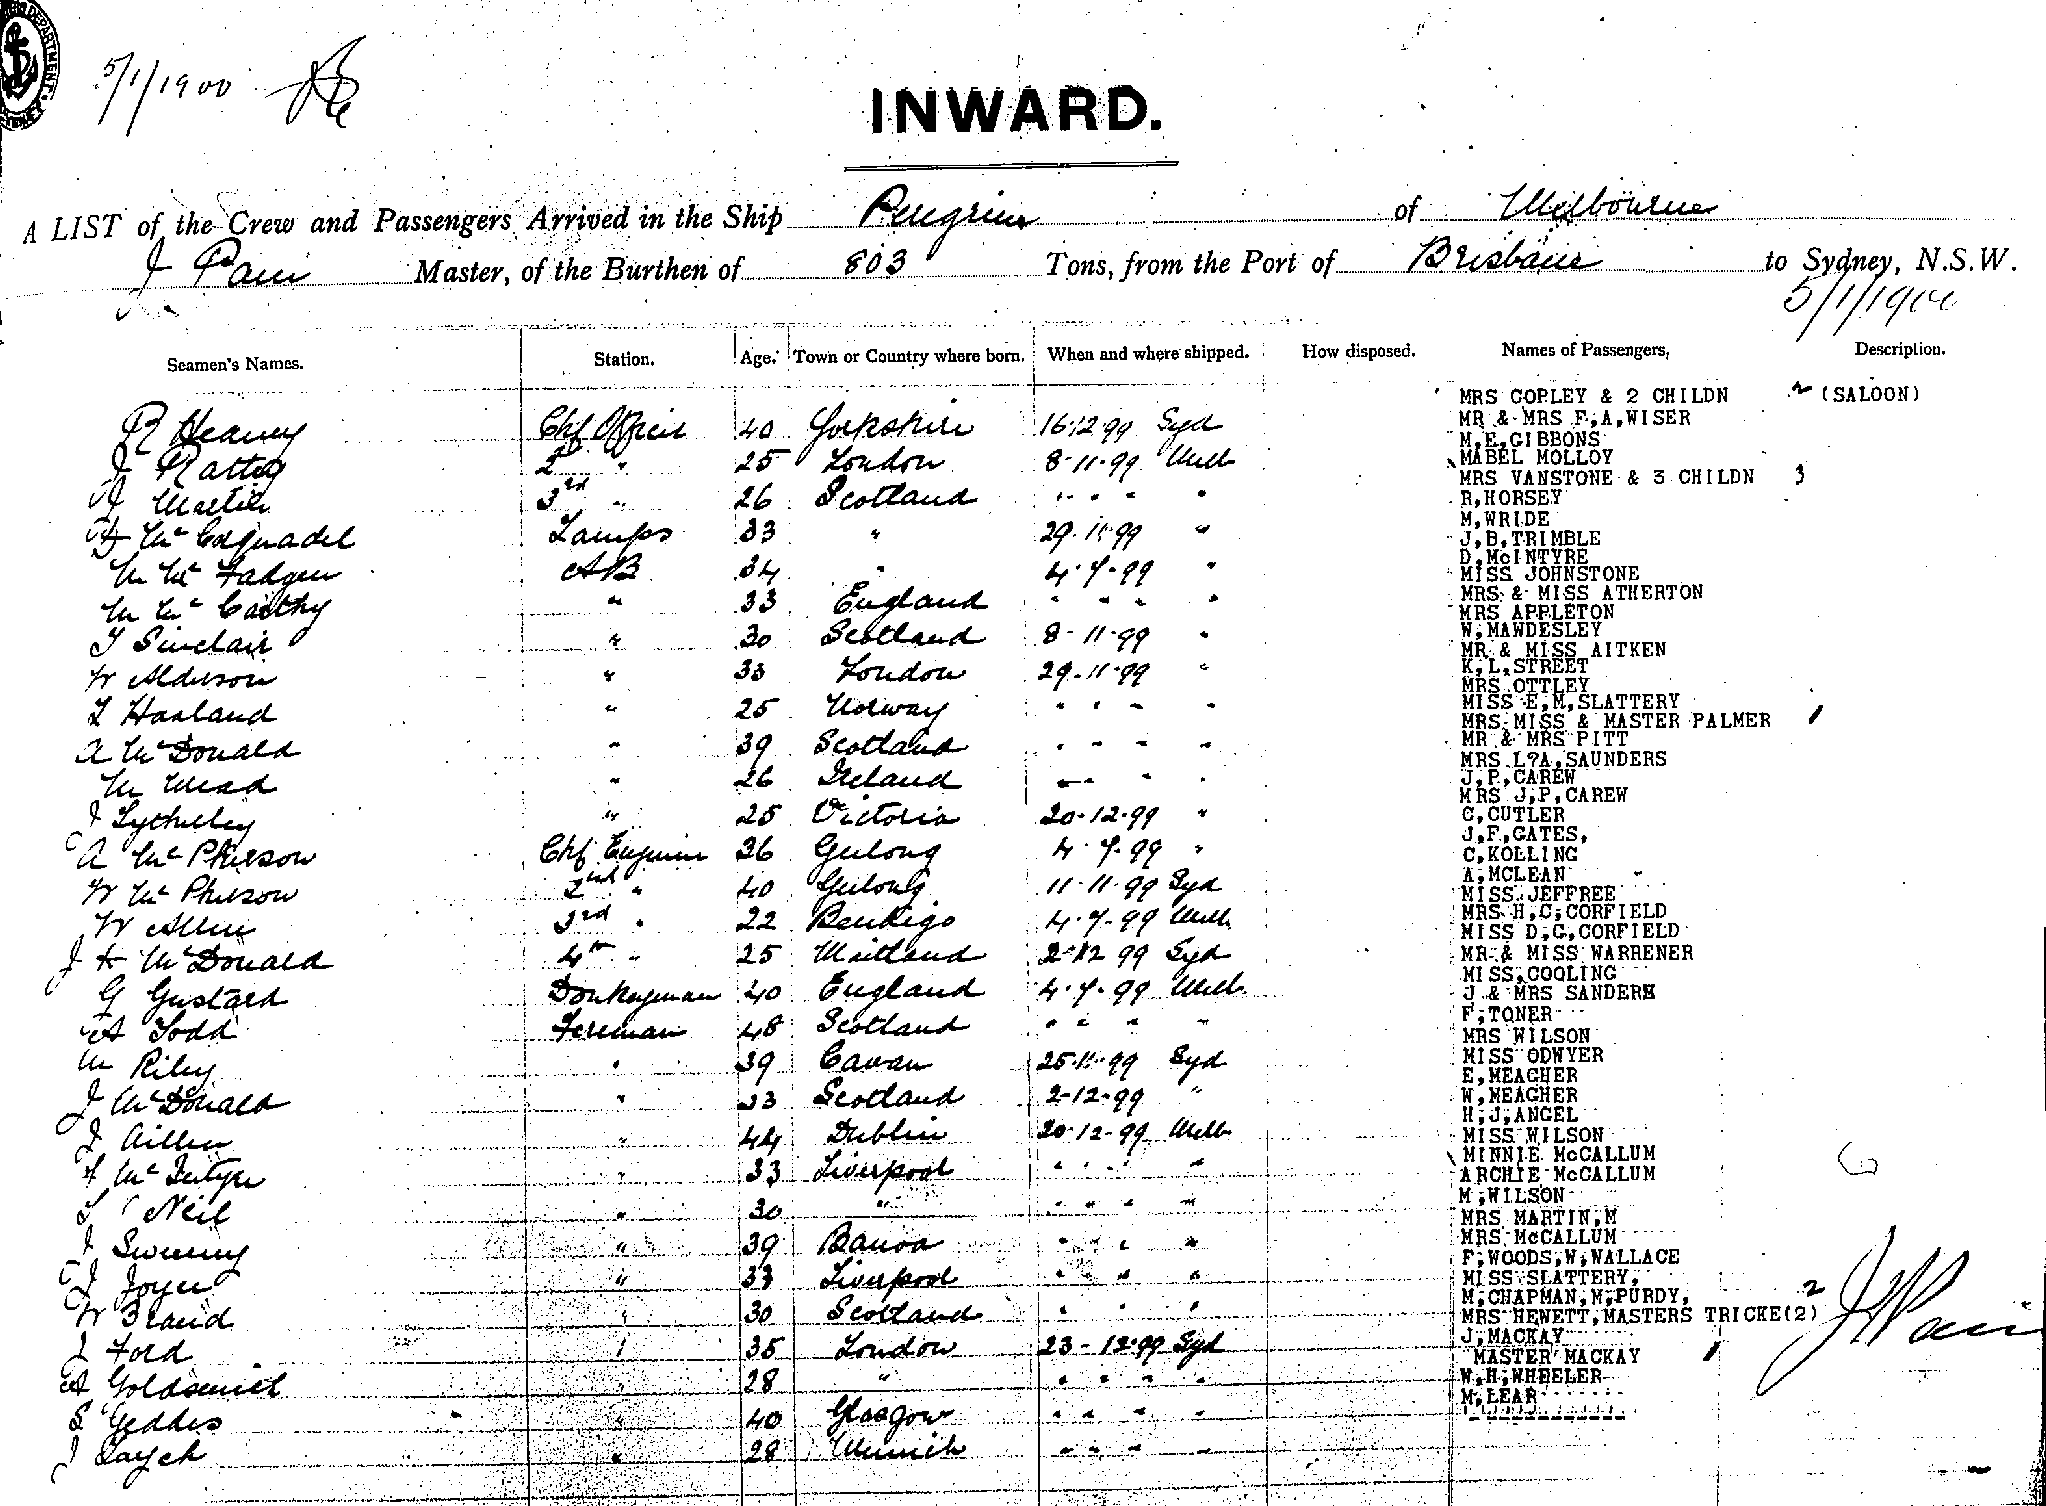 5/1/1900
INWARD.
A LIST of the Crew and Passengers Arrived in the Ship Peregrine of Melbourne
J Pain Master, of the Burthen of 803 Tons, from the Port of Brisbane to Sydney, N.S.W.
5/1/1900
Seamen's Names. Station. Age. Town or Country where born. When and where shipped. How disposed. Names of Passengers, Description.
R Heaney Chf Officer 40 Yorkshire 16.12.99 Syd
J Rattey 2nd " 25 London 8-11-99 Melb
J Martin 3rd " 26 Scotland " " " "
Lamps 33 " 29.11.99 "
M McFadgen AB 34 " 4.7.99 "
M McCarthy " 33 England " " " "
T Sinclair " 30 Scotland 8-11-99 "
W Alderson " 33 London 29.11.99 "
T Haaland " 25 Norway " " " "
A McDonald " 39 Scotland " " " "
M Mead " 26 Ireland " " "
" 25 Victoria 20.12.99 "
A McPherson Chf Engineer 36 Geelong 4.7.99 "
W McPherson 2nd " 40 Geelong 11.11.99 Syd
W Allen 3rd " 22 Bendigo 4.7.99 Melb
J McDonald 4th " 25 Maitland 2-12 99 Syd
G Gustard Donkeyman 40 England 4.7.99 Melb
A Todd Fireman 48 Scotland " " " "
M Riley " 39 Cavan 25.11.99 Syd
J McDonald " 33 Scotland 2-12-99 "
J Aillen " 44 Dublin 20-12-99 Melb
McIntyre " 33 Liverpool " " " "
Neil " 30 " " " " "
J Sweeny " 39 " " " "
J Joyce " 33 Liverpool " " "
W Brand " 30 Scotland " " "
J Ford " 35 London 23-12-99 Syd
A Goldsmith " 28 " " " " "
S Geddes " 40 Glasgow " " " "
J " 28 Munich " " " "
MRS COPLEY & 2 CHILDN 2 (SALOON)
MR & MRS F,A,WISER
M,E,GIBBONS
MABEL MOLLOY
MRS VANSTONE & 3 CHILDN 3
R,HORSEY
M,WRIDE
J,B,TRIMBLE
D,McINTYRE
MISS JOHNSTONE
MRS & MISS ATHERTON
MRS APPLETON
W,MAWDESLEY
MR & MISS AITKEN
K,L,STREET
MRS OTTLEY
MISS E,M,SLATTERY
MRS MISS & MASTER PALMER 1
MR & MRS PITT
MRS L?A,SAUNDERS
J,P,CAREW
MRS J,P,CAREW
C,CUTLER
J,F,GATES,
C,KOLLING
A,MCLEAN
MISS JEFFREE
MRS H,C,CORFIELD
MISS D,G,CORFIELD
MR & MISS WARRENER
MISS,COOLING
J & MRS SANDERS
F,TONER
MRS WILSON
MISS ODWYER
E,MEAGHER
W,MEAGHER
H,J,ANGEL
MISS WILSON
MINNIE McCALLUM
ARCHIE McCALLUM
M,WILSON
MRS MARTIN,M
MRS McCALLUM
F,WOODS,W,WALLACE
MISS SLATTERY,
M,CHAPMAN,M,PURDY,
MRS HEWETT,MASTERS TRICKE(2) 2
J,MACKAY
MASTER MACKAY 1
W,H,WHEELER
M,LEAR
J Pain